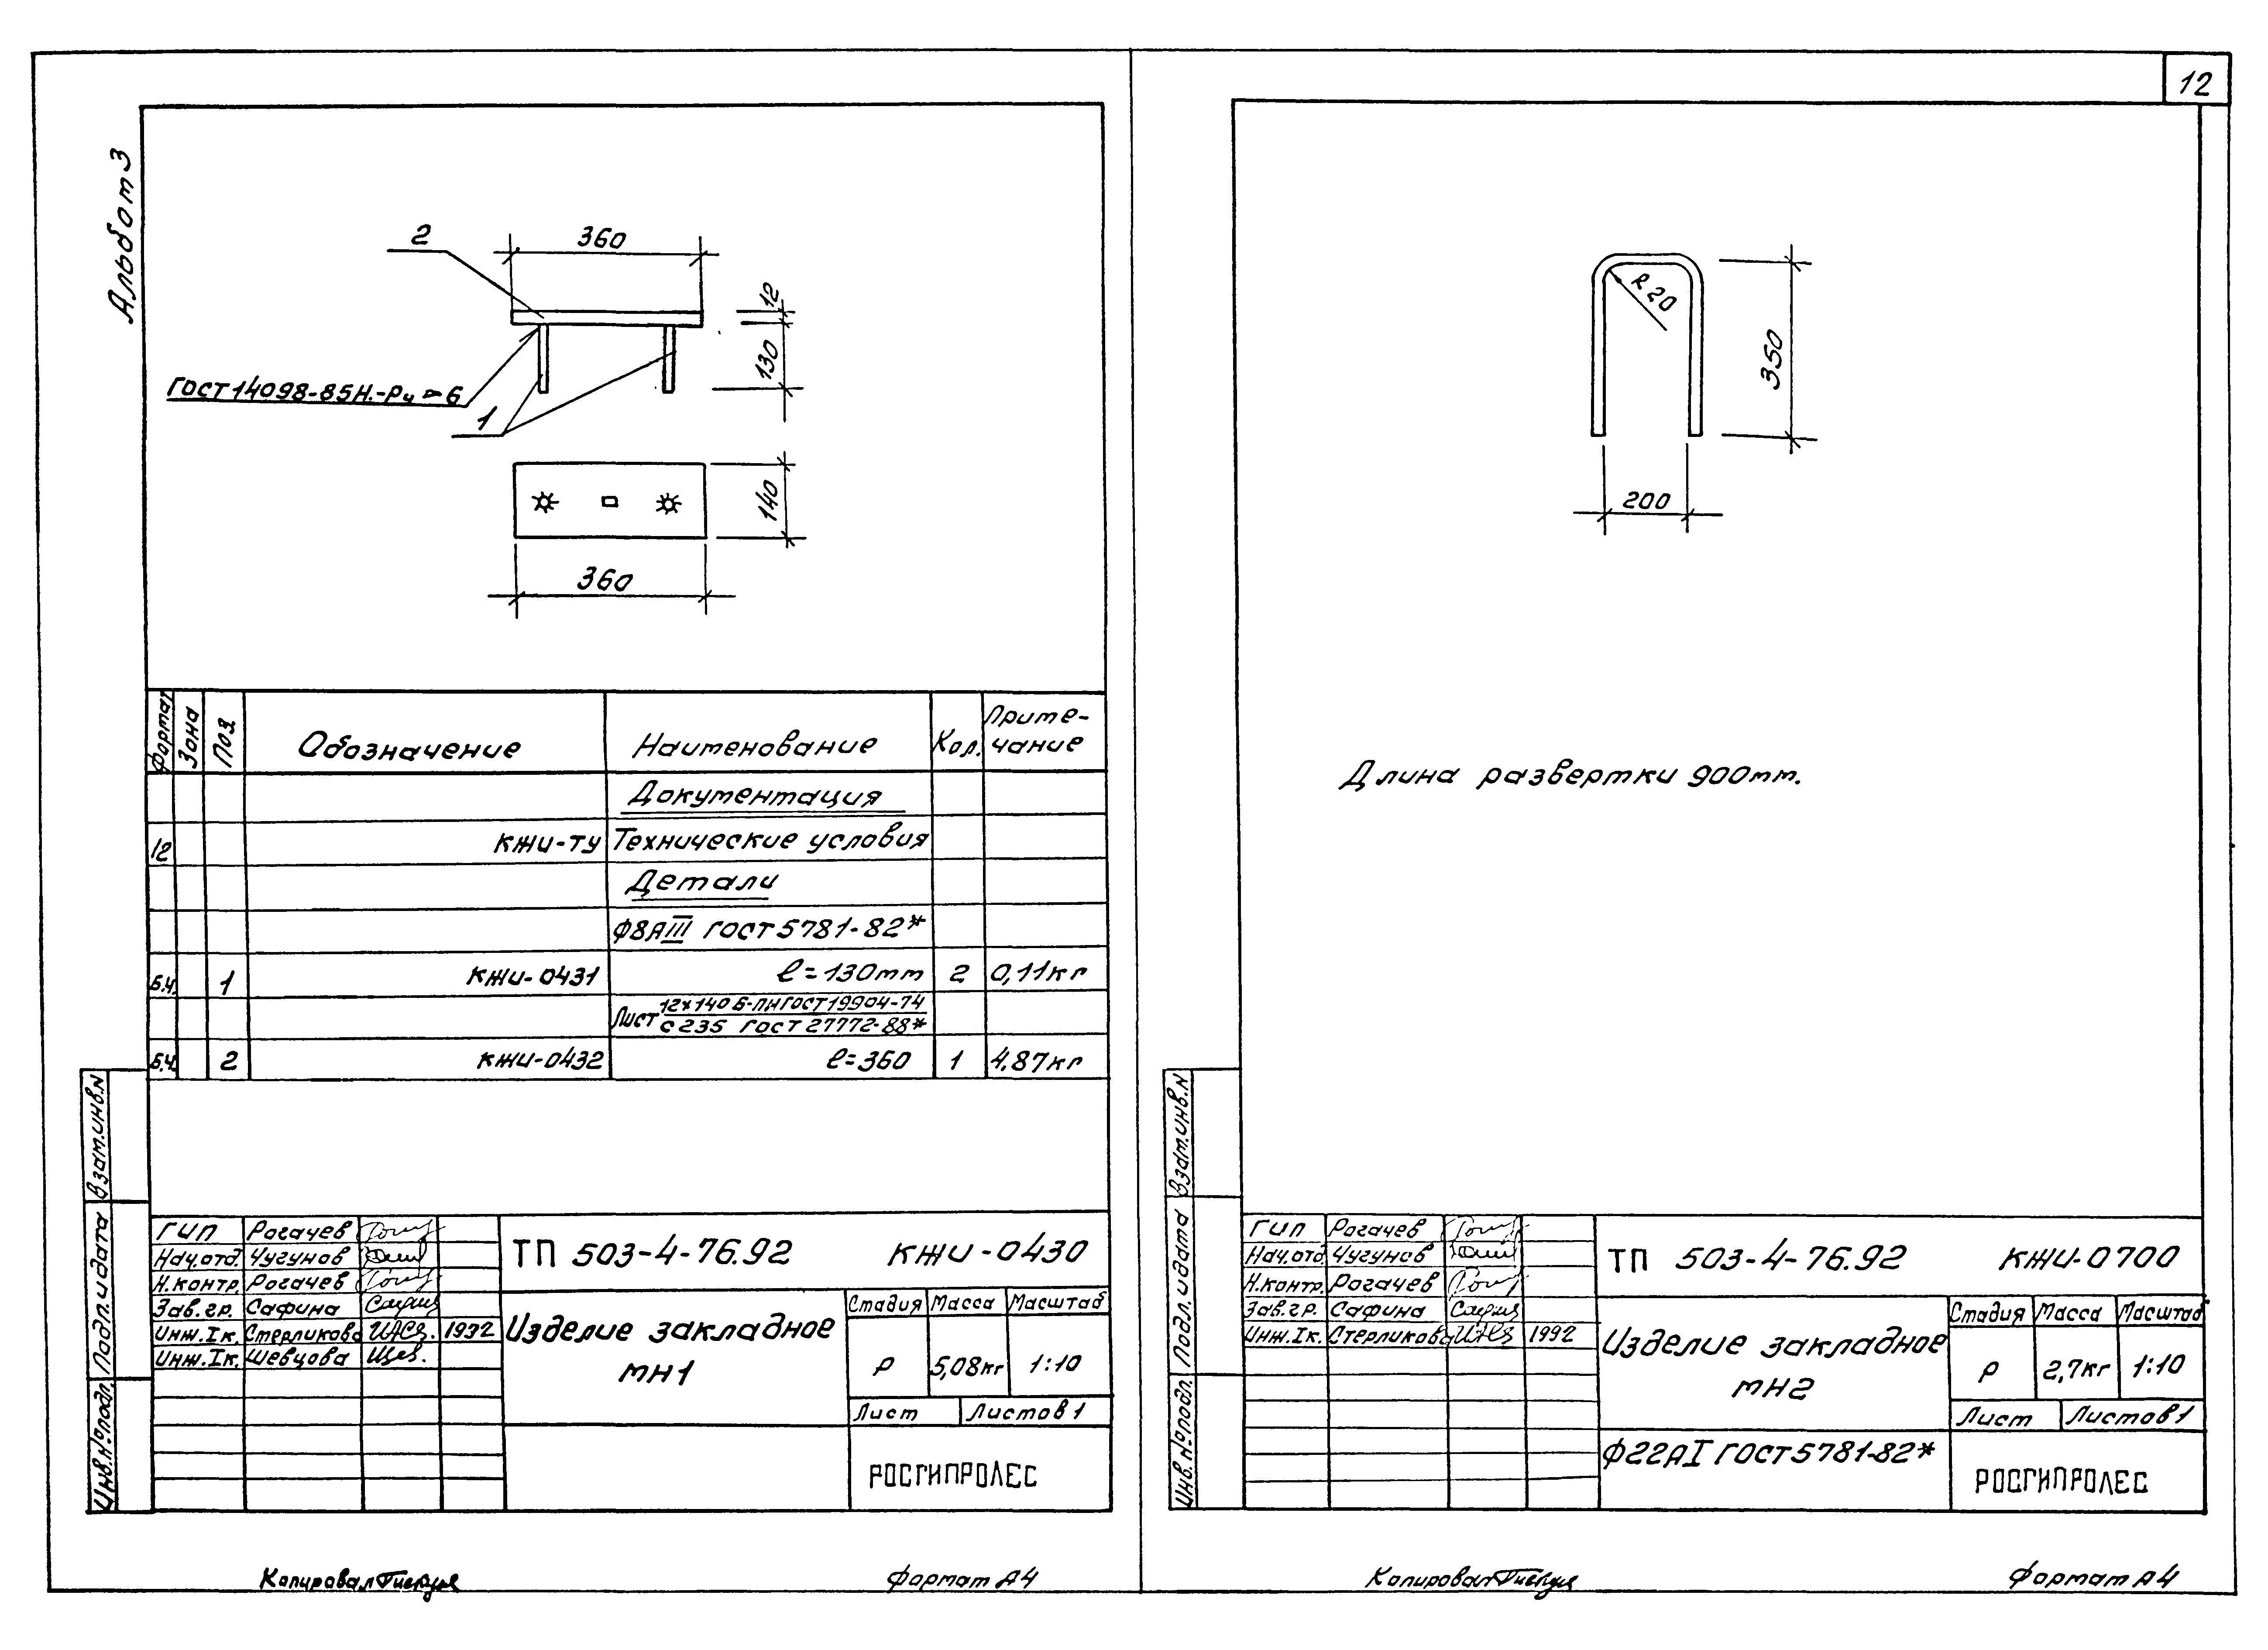 12
Альбом 3
2
360
12
130
ГОСТ 14098-85Н.-Рч 6
1
140
360
Формат
Зона
Поз.
Обозначение
Наименование
Кол.
Приме-
чание
Документация
12 КЖИ-ТУ Технические условия
Детали
Ф8АIII ГОСТ 5781-82*
Б.ч. 1 КЖИ-0431 ℓ=130мм 2 0,11кг
Лист 12х140 Б-ПН ГОСТ 19904-74
С235 ГОСТ 27772-88*
Б.ч. 2 КЖИ-0432 ℓ=360 1 4,87кг
Взам.инв.N
Подп. и дата
Инв.№подл.
ГИП Рогачев
Нач.отд. Чугунов
Н.контр. Рогачев
Зав.гр. Сафина
Инж.Iк. Стерликова 1992
Инж.Iк. Шевцова
ТП 503-4-76.92 КЖИ-0430
Изделие закладное
МН1
Стадия Масса Масштаб
Р 5,08кг 1:10
Лист Листов 1
РОСГИПРОЛЕС
Копировал
Формат А4
R20
350
200
Длина развертки 900мм.
Взам.инв.N
Подп. и дата
Инв.№подл.
ГИП Рогачев
Нач.отд. Чугунов
Н.контр. Рогачев
Зав.гр. Сафина
Инж.Iк. Стерликова 1992
ТП 503-4-76.92 КЖИ-0700
Изделие закладное
МН2
Стадия Масса Масштаб
Р 2,7кг 1:10
Лист Листов 1
Ф22АI ГОСТ 5781-82*
РОСГИПРОЛЕС
Копировал
Формат А4